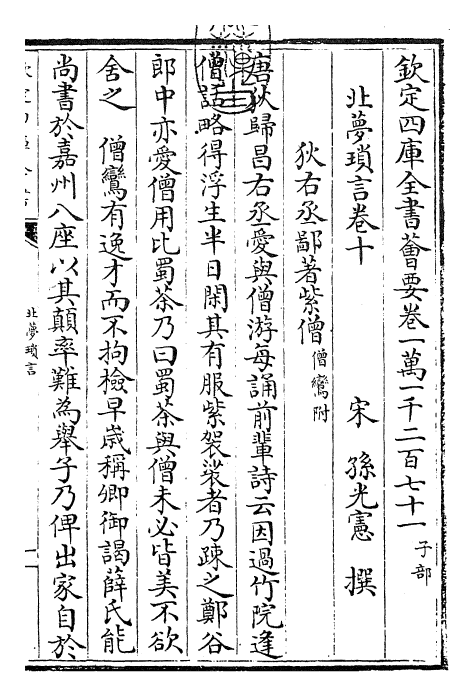 欽定四庫全書薈要卷一萬一千二百七十一 子部
北夢瑣言卷十
宋 孫光憲 撰
狄右丞鄙著紫僧 僧鸞附
唐狄歸昌右丞愛與僧游每誦前輩詩云因過竹院逢
僧話略得浮生半日閑其有服紫袈裟者乃疎之鄭谷
郎中亦愛僧用比蜀茶乃曰蜀茶與僧未必皆美不欲
舍之 僧鸞有逸才而不拘檢早歲稱卿御謁薛氏能
尚書於嘉州八座以其顛率難為舉子乃俾出家自於
北夢瑣言